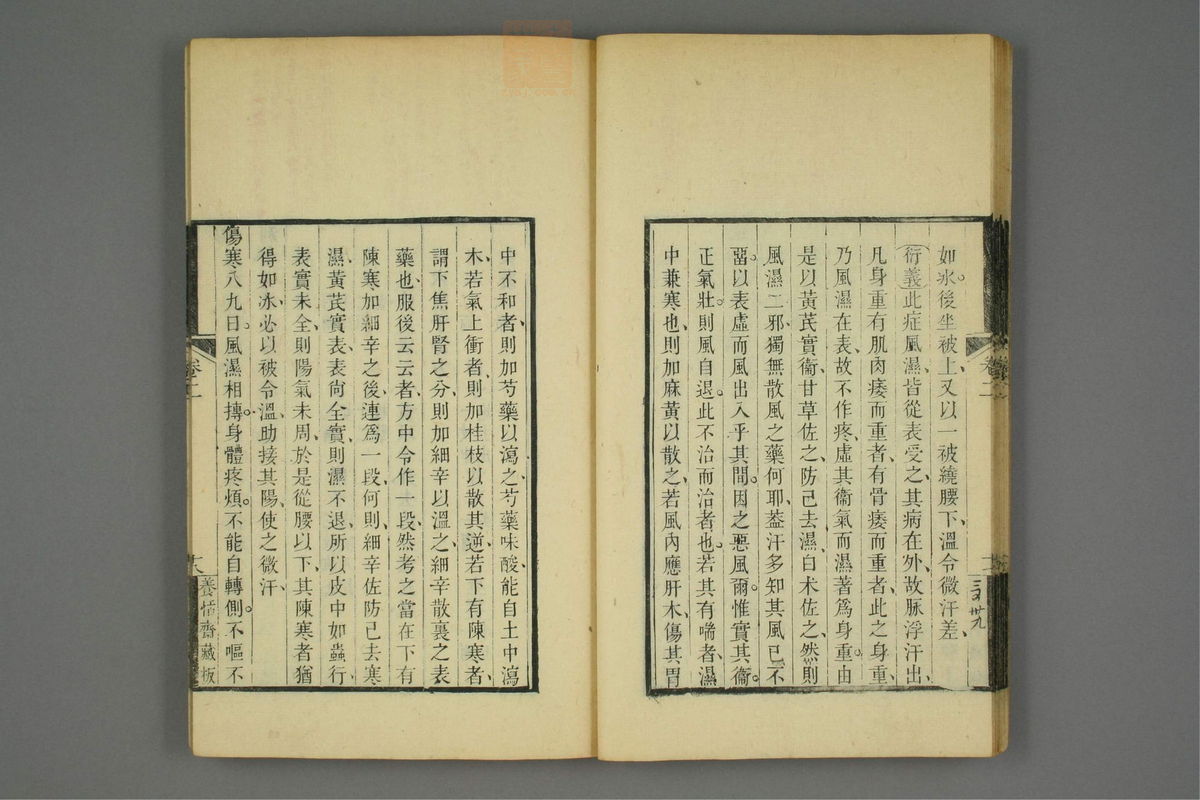 如氷後坐被上又以一被繞腰下溫令微汗差
衍義此症風濕皆從表受之其病在外故脉浮汗出
凡身重有肌肉痿而重者有骨痿而重者此之身重
乃風濕在表故不作疼虛其衞氣而濕著爲身重由
是以黃芪實衞甘草佐之防己去濕白术佐之然則
風濕二邪獨無散風之藥何耶葢汗多知其風已不
畱以表虛而風出入乎其間因之惡風爾惟實其衞
正氣壯則風自退此不治而治者也若其有喘者濕
中兼寒也則加麻黃以散之若風內應肝木傷其胃
卷二
中不和者則加芍藥以瀉之芍藥味酸能自土中瀉
木若氣上衝者則加桂枝以散其逆若下有陳寒者
謂下焦肝腎之分則加細辛以溫之細辛散裏之表
藥也服後云云者方中令作一段然考之當在下有
陳寒加細辛之後連爲一段何則細辛佐防己去寒
濕黃芪實表表尙全實則濕不退所以皮中如蟲行
表實未全則陽氣未周於是從腰以下其陳寒者猶
得如氷必以被令溫助接其陽使之微汗
傷寒八九日風濕相摶身體疼煩不能自轉側不嘔不
卷二
養恬齋藏板